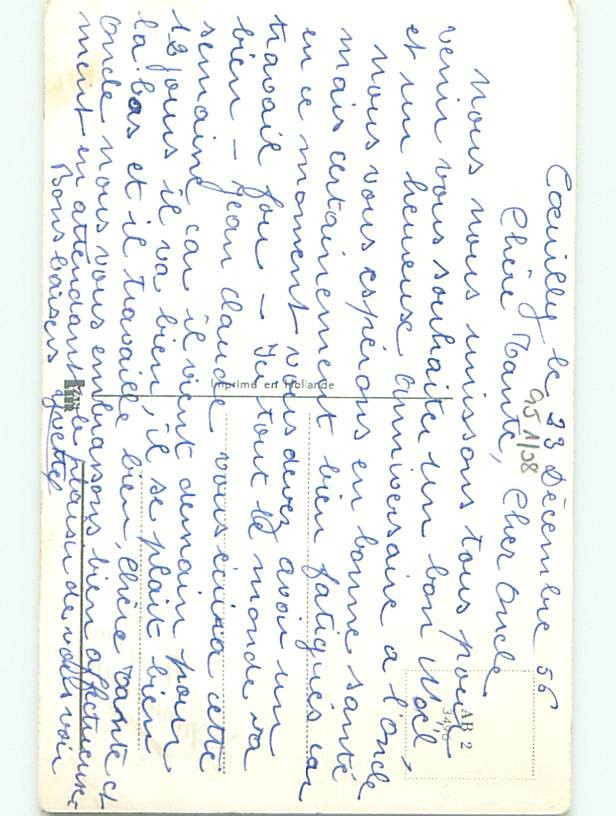 Cœuilly le 23 Décembre 56
Chère Tante, Cher Oncle
nous nous unissons tous pour
venir vous souhaiter un bon Noël,
et un heureux anniversaire a l'oncle
nous vous espérons en bonne santé
mais certainement bien fatigués car
en ce moment vous devez avoir un
travail fou - Ici tout le monde va
bien - Jean Claude vous écrira cette
semaine car il vient demain pour
12 jours il va bien, il se plait bien
la bas et il travaille bien, Chère Tante et
Oncle nous vous embrassons bien affectueuse-
ment en attendant le plaisir de vous voir
Bons baisers Yvette
951/08
Imprimé en Hollande
AB 2
3496